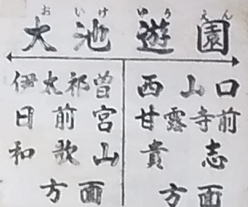 おいけゆうえん
大池遊園
伊太祁曽
日前宮
和歌山
方面
西山口
甘露寺前
貴志
方面